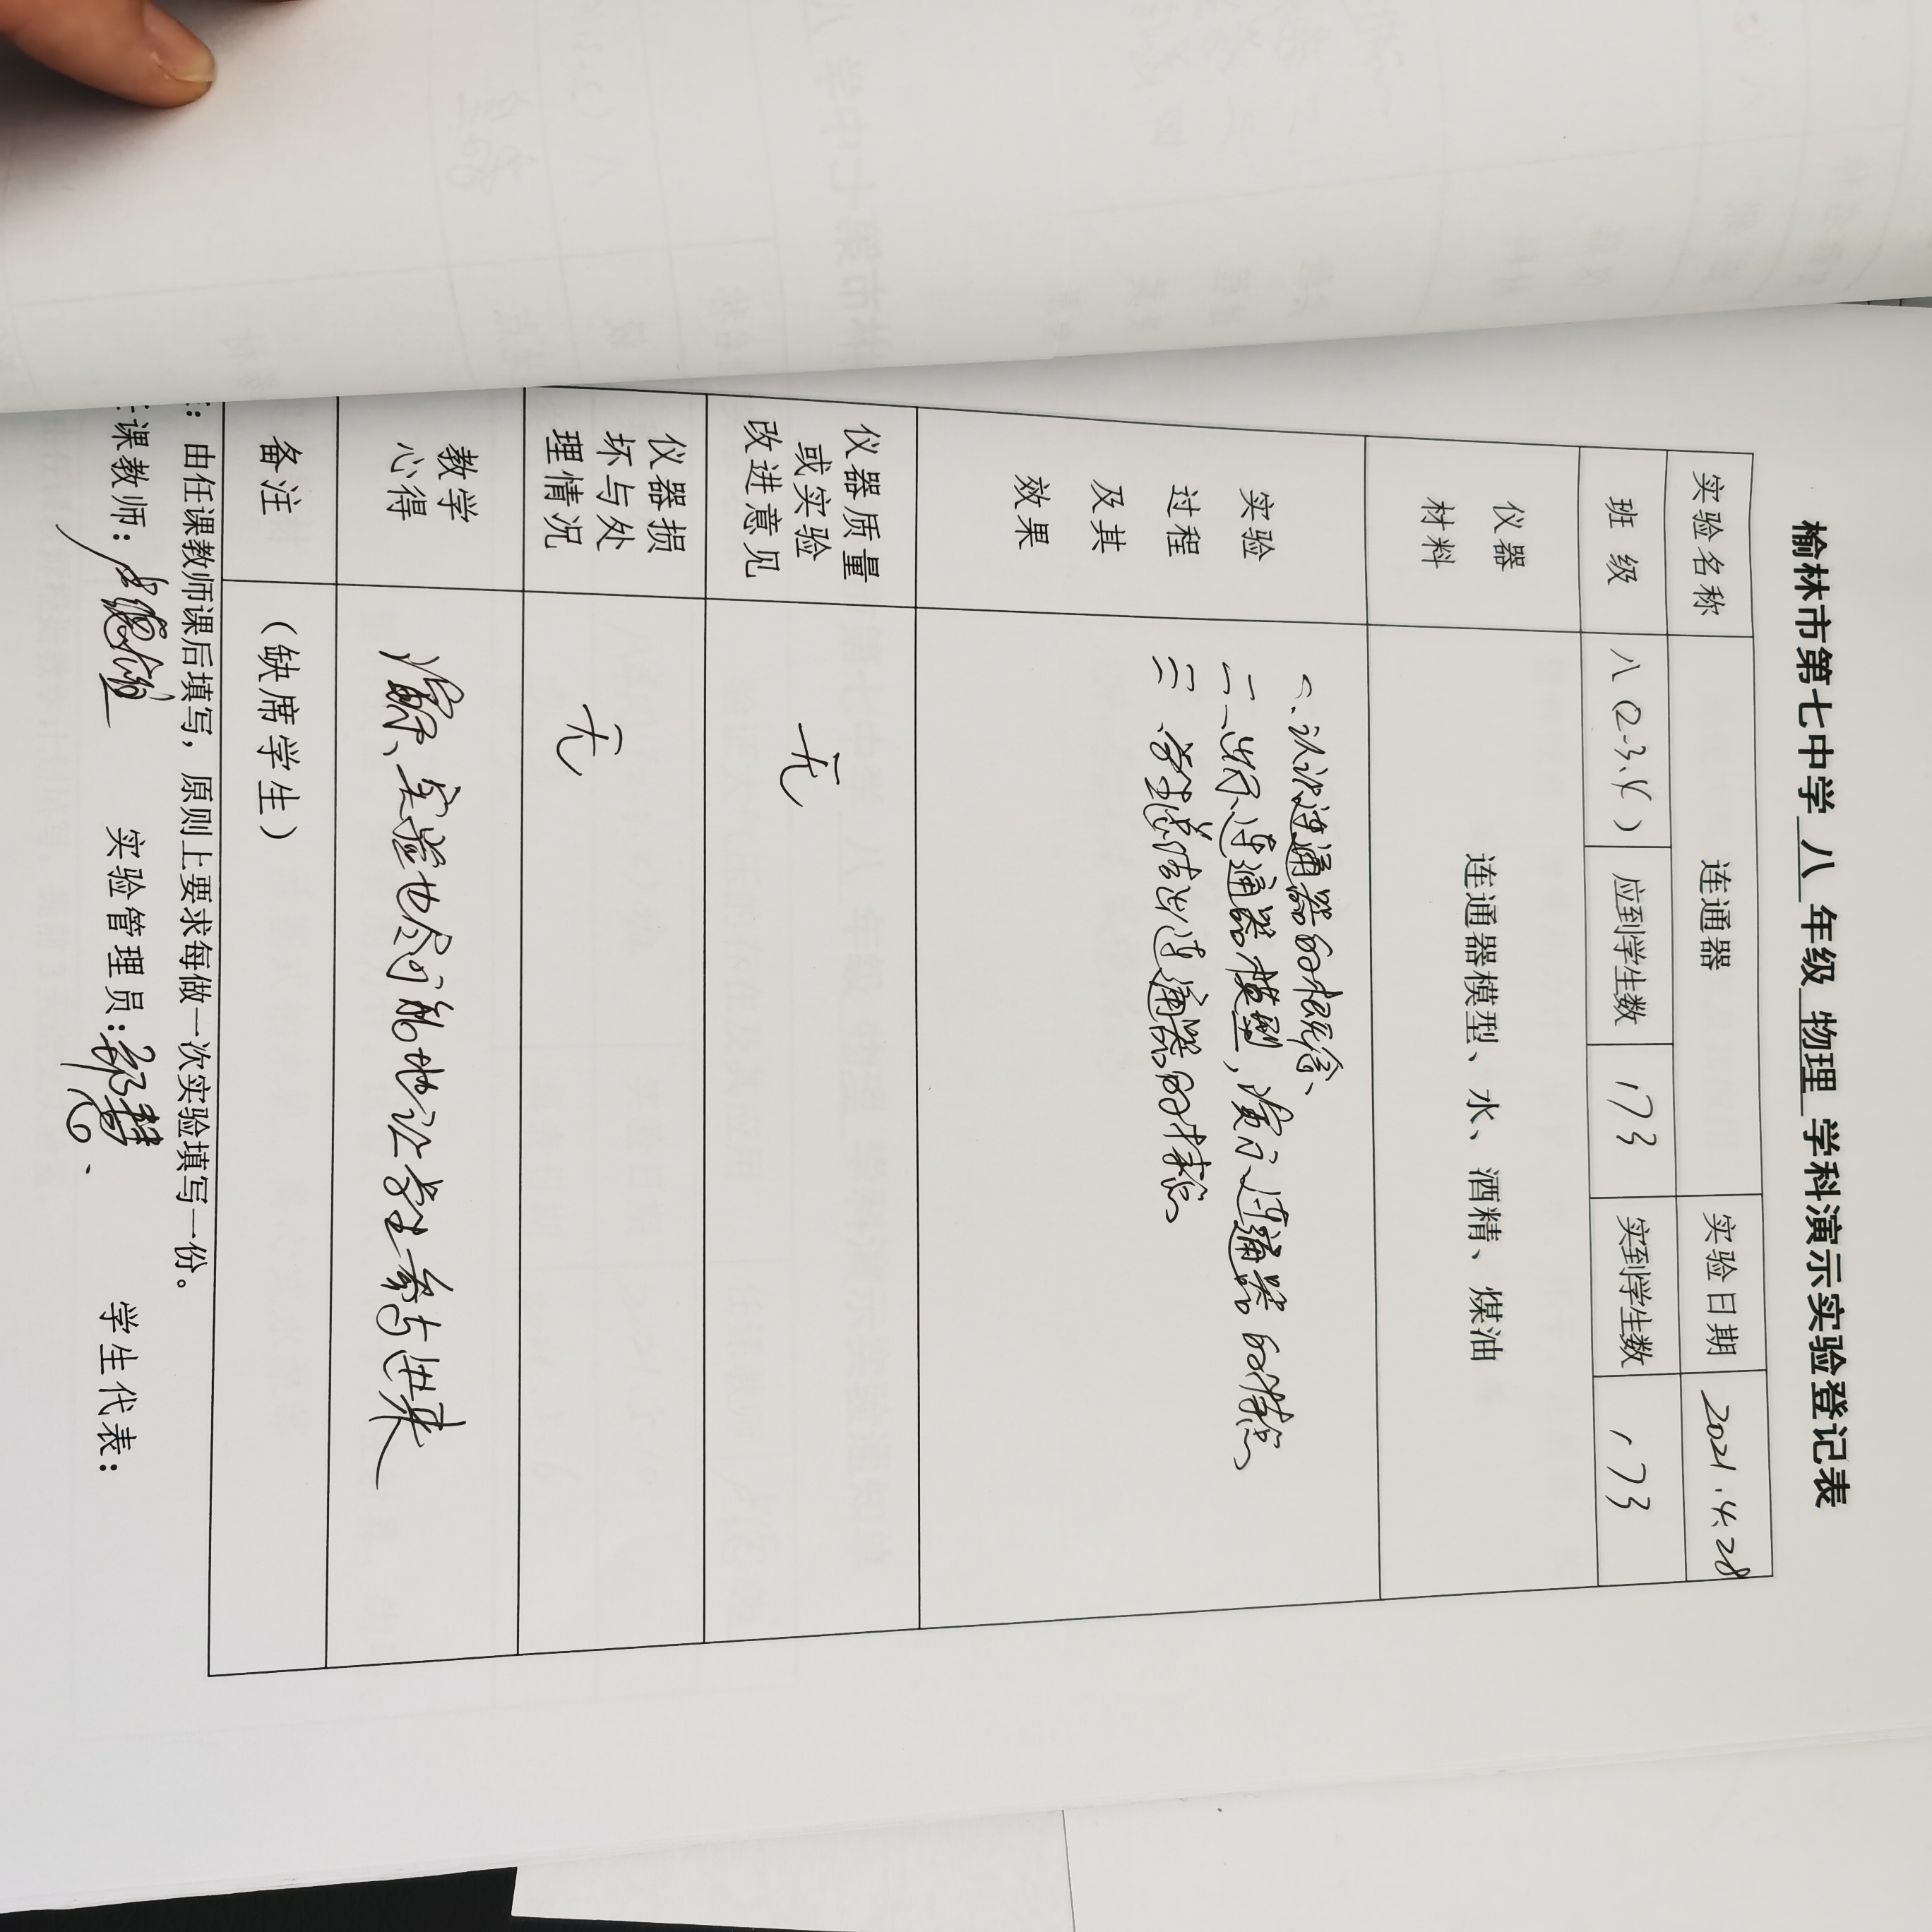 榆林市第七中学 八 年级 物理 学科演示实验登记表
实验名称 连通器 实验日期 2021.4.28
班 级 八（2.3.4） 应到学生数 173 实到学生数 173
仪器
材料
连通器模型、水、酒精、煤油
实验
过程
及其
效果
一、认识连通器的概念、
二、出示连通器模型，演示连通器的特点
三、学生总结出连通器的特点
仪器质量
或实验
改进意见
无
仪器损
坏与处
理情况
无
教学
心得
演示实验也尽可能地让学生参与进来
备注
（缺席学生）
：由任课教师课后填写，原则上要求每做一次实验填写一份。
课教师： 实验管理员： 学生代表：